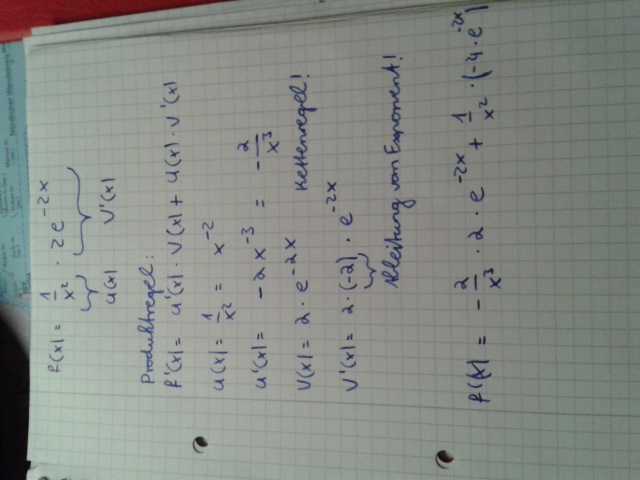 f(x) = 1/x² · 2e^-2x
u(x) v'(x)
Produktregel:
f'(x) = u'(x) · v(x) + u(x) · v'(x)
u(x) = 1/x² = x^-2
u'(x) = -2x^-3 = -2/x³
v(x) = 2 · e^-2x Kettenregel!
v'(x) = 2 · (-2) · e^-2x
Ableitung von Exponent!
f'(x) = -2/x³ · 2 · e^-2x + 1/x² · (-4 · e^-2x)